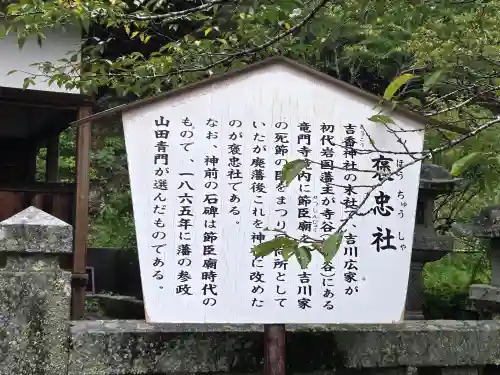 褒忠社
ほう ちゅう しゃ
吉香神社の末社で、吉川広家が
初代岩国藩主が寺谷
竜門寺 内に節臣廟
の死節の臣をまつり 吉川家
いたが廃藩後これを神社に改めた
のが褒忠社である。
なお、神前の石碑は節臣廟時代の
もので、一八六五年に藩の参政
山田青門が選んだものである。